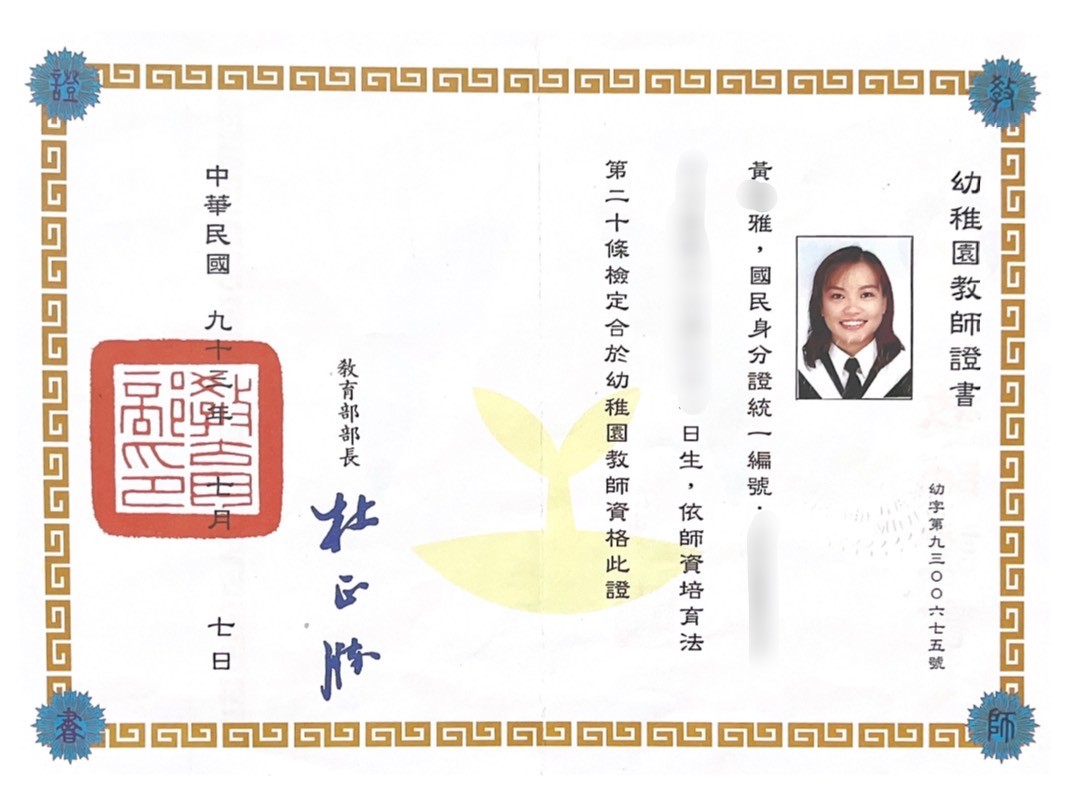 教
師
證
書
幼稚園教師證書
幼字第九三００六七五號
黃
雅，國民身分證統一編號
日生，依師資培育法
第二十條檢定合於幼稚園教師資格此證
教育部部長
杜正勝
中華民國 九十三年 七月 七日
教育部印